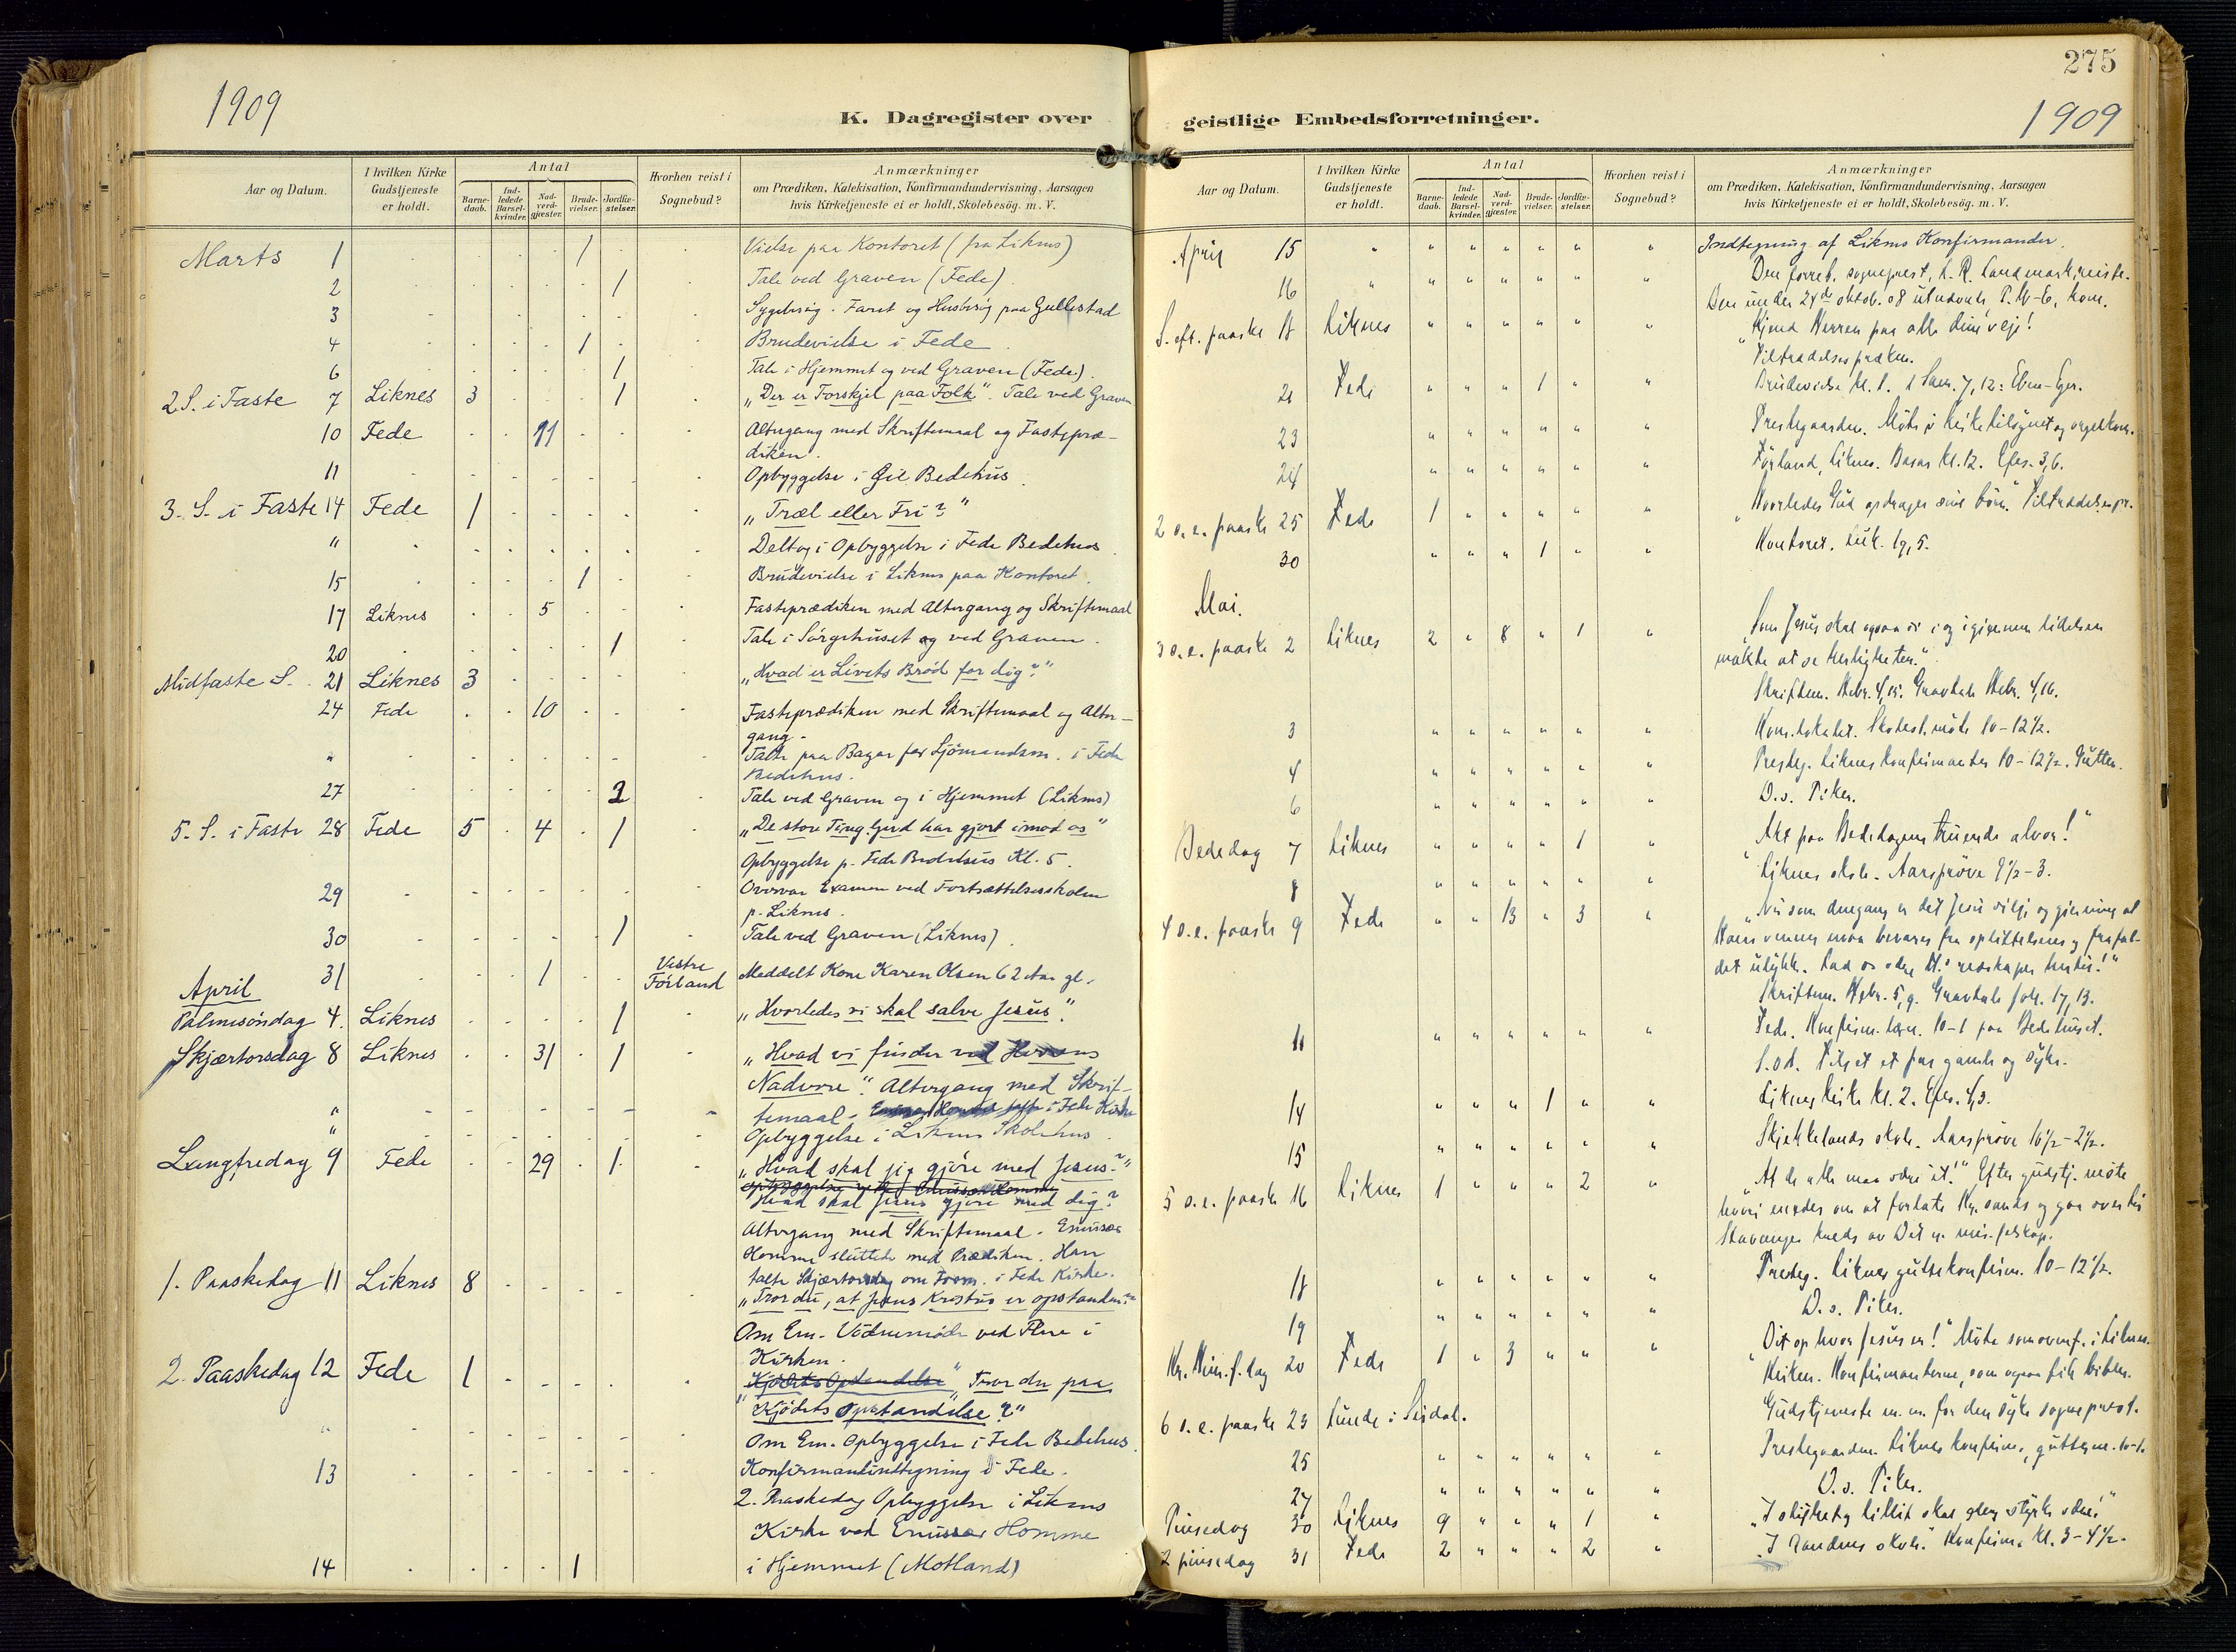 1909
K. Dagregister over
Aar og Datum.
I hvilken Kirke Gudstjeneste er holdt.
Antal
Barnedaab.
Indledede Barselkvinder.
Nadverdgjæster.
Brudevielser.
Jordfæstelser.
Hvorhen reist i Sognebud?
Anmærkninger
om Prædiken, Katekisation, Konfirmandundervisning, Aarsagen
hvis Kirketjeneste ei er holdt, Skolebesög. m. V.
Marts 1 1 Vielse paa Kontoret (fra Liknes)
2 1 Tale ved Graven (Fede)
3 Husbesøg paa Gullestad
4 1 Brudevielse i Fede
6 1 Tale i Hjemmet og ved Graven (Fede).
2 S. i Faste 7 Liknes 3 1 „Der er Forskjel paa Folk". Tale ved Graven
10 Fede 11 Altergang med Skriftemaal og Fastepræ-
diken.
11 Opbyggelse i Gil Bedehus
3. S. i Faste 14 Fede 1 „Træl eller Fri?"
" Deltog i Opbyggelse i Fede Bedehus
15 1 Brudevielse i Liknes paa Kontoret.
17 Liknes 5 Fasteprædiken med Altergang og Skriftemaal
20 1 Tale i Sørgehuset og ved Graven.
Midfaste S. 21 Liknes 3 „Hvad er Livets Brød for dig?"
24 Fede 10 Fasteprædiken med Skriftemaal og Alter-
gang.
" Talte paa Bazar for Sjömandsm. i Fede
Bedehus.
27 2 Tale ved Graven og i Hjemmet (Liknes)
5. S. i Faste 28 Fede 5 4 1 „De store Ting Gud har gjort imod os"
Opbyggelse p. Fede Bedehus Kl. 5.
29 Overvar Examen ved Fortsættelsesskolen
p. Liknes.
30 1 Tale ved Graven (Liknes).
31 1 Vestre Förland Meddelt Kone Karen Olsen 62 Aar gl.
April
Palmesöndag 4. Liknes 1 „Hvorledes vi skal salve Jesus".
Skjærtorsdag 8 Liknes 31 1 „Hvad vi finder ved Herrens
Nadvere". Altergang med Skrif-
temaal. i Fede Kirke
" Opbyggelse i Liknes Skolehus.
Langfredag 9 Fede 29 1 „Hvad skal jeg gjöre med Jesus?"
Hvad skal Jesus gjöre med dig?
Altergang med Skriftemaal. Emissær
Homme sluttede med Prædiken. Han
talte Skjærtorsdag om Form. i Fede Kirke.
1. Paaskedag 11 Liknes 8 „Tror du, at Jesus Kristus er opstanden?"
Om Em. Vidnemöde ved Flere i
Kirken.
2. Paaskedag 12 Fede 1 „Tror du paa
Kjödets Opstandelse?"
" Om Em. Opbyggelse i Fede Bedehus.
13 Konfirmandindtegning i Fede.
2. Paaskedag Opbyggelse i Liknes
Kirke ved Emissær Homme
14 1 i Hjemmet (Motland)
275
1909
geistlige Embedsforretninger.
Aar og Datum.
I hvilken Kirke Gudstjeneste er holdt.
Antal
Barnedaab.
Indledede Barselkvinder.
Nadverdgjæster.
Brudevielser.
Jordfæstelser.
Hvorhen reist i Sognebud?
Anmærkninger
om Prædiken, Katekisation, Konfirmandundervisning, Aarsagen
hvis Kirketjeneste ei er holdt, Skolebesög. m. V.
April 15 Indtegning af Liknes Konfirmander.
16 Den sogneprest, L. R. Landmark, reiste.
Den under 24de oktob. 08 utnævnte, P. kom.
S. eft. paaske 18 Liknes „Kjend Herren paa alle dine veje!"
Tiltrædelsespræken.
21 Fede 1 Brudevielse kl. 1. 1 Sam. 7, 12: Eben-Ezer.
23 Prestegaarden. Møte kirketilsynet og
24 Förland, Liknes. Basar kl. 12. Efes. 3, 6.
2 s. e. paaske 25 Fede 1 „Hvorledes Gud opdrager sine börn." Tiltrædelsespr.
30 1 Kontoret. Luk. 19, 5.
Mai.
3 s. e. paaske 2 Liknes 2 8 1 „Som Jesus skal ogsaa vi i og igjennem lidelsen
herligheten."
Skriftem. Hebr. 4, 15. Gravtale Hebr. 4, 16.
3 Kom.lokalet. Skolest. møte 10-12½.
4 Presteg. Liknes konfirmanter 10-12½. Gutter.
6 D.s. Piker.
Bededag 7 Liknes 1 „Akt paa Bededagens truende alvor!"
8 Liknes skole. Aarsprøve 9½-3.
4 s. e. paaske 9 Fede 13 3 „Nu som dengang er det Jesu vilje og gjerning at
Hans venner maa bevares fra splittelsens og frafal-
det ulykke. Lad os være H.s redskaper hertil!"
Skriftem. Hebr. 5, 9. Gravtale Joh. 17, 13.
11 Fede. Konfirm. 10-1 paa Bedehuset.
par gamle og syke.
14 1 Liknes kirke kl. 2. Efes. 4, 3.
15 Skjekkelands skole. Aarsprøve 10½-2½.
5 s. e. paaske 16 Liknes 1 2 „At de alle maa være et!" Efter gudstj. møte
hvori enedes om at forlate Kr.sands og gaa over til
Stavanger kreds av Det n. mis.selskap.
18 Presteg. Liknes guttekonfirm. 10-12½.
19 D.s. Piker.
Kr. Him.f.dag 20 Fede 1 3 „Dit op hvor Jesus er!" Møte som ovenf. i Liknes.
Kirken. Konfirmanterne, som ogsaa fik bibler.
6 s. e. paaske 23 Lunde i Sirdal. Gudstjeneste m. m. for den syke sogneprest.
25 Prestegaarden. Liknes konfirm., gutterne. 10-1.
27 D.s. Piker.
Pinsedag 30 Liknes 9 1 „I stilhet og tillit skal eders styrke være!"
2 pinsedag 31 Fede 2 2 „I Aandens skole." Konfirm. kl. 3-4½.